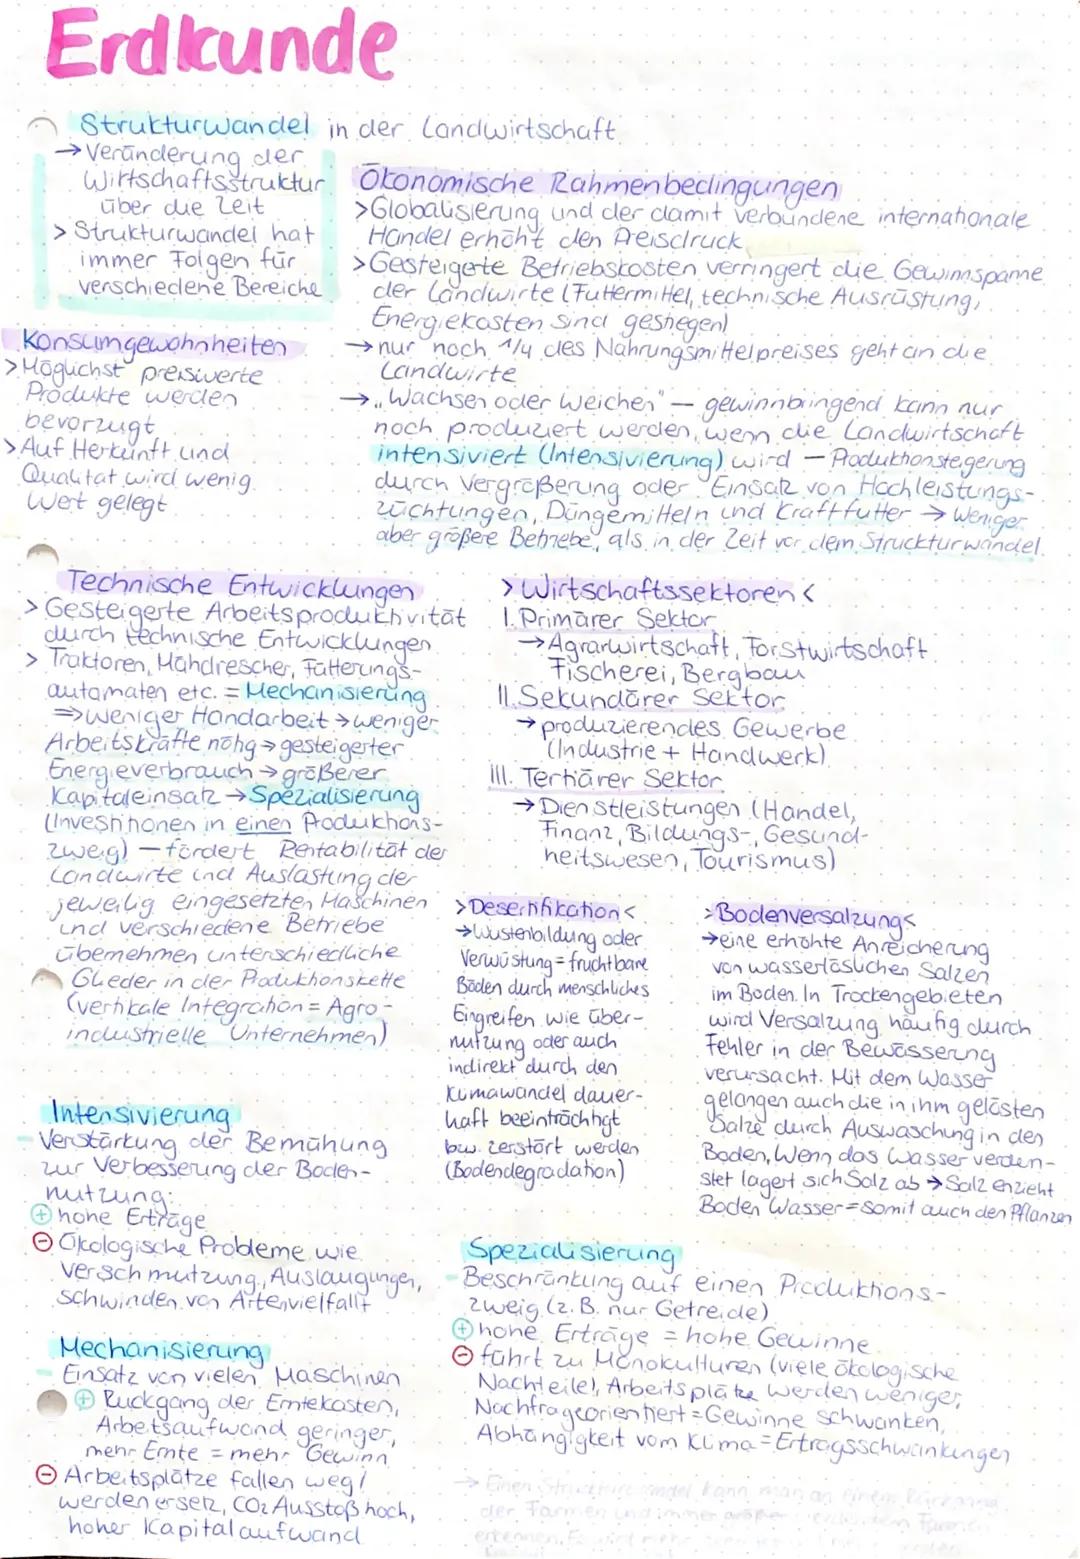 Erdkunde
Strukturwandel in der Landwirtschaft
→ Veränderung der
Wirtschaftsstruktur
über die Zeit
> Strukturwandel hat
immer Folgen für
verschiedene Bereiche
Ökonomische Rahmenbedingungen
> Globalisierung und der damit verbundene internationale
Handel erhöht den Preisdruck
> Gesteigerte Betriebskosten verringert die Gewinnspanne
der Landwirte (Futtermittel, technische Ausrüstung,
Energiekosten sind gestiegen)
→ nur noch 1/4 des Nahrungsmittelpreises geht an die
Landwirte
→ „Wachsen oder Weichen" — gewinnbringend kann nur
noch produziert werden, wenn die Landwirtschaft
intensiviert (Intensivierung) wird — Produktionsteigerung
durch Vergrößerung oder Einsatz von Hochleistungs-
züchtungen, Düngemitteln und Kraftfutter → weniger
aber größere Betriebe, als in der Zeit vor dem Struckturwandel
Konsumgewohnheiten
> Möglichst preiswerte
Produkte werden
bevorzugt
> Auf Herkunft und
Qualität wird wenig
Wert gelegt
Technische Entwicklungen
> Gesteigerte Arbeitsproduktivität
durch technische Entwicklungen
> Traktoren, Mähdrescher, Fütterungs-
automaten etc. = Mechanisierung
⇒ weniger Handarbeit → weniger
Arbeitskräfte nötig → gesteigerter
Energieverbrauch → größerer
Kapitaleinsatz → Spezialisierung
(Investitionen in einen Produktions-
zweig) — fördert Rentabilität der
Landwirte und Auslastung der
jeweilig eingesetzten Maschinen
und verschiedene Betriebe
übernehmen unterschiedliche
Glieder in der Produktionskette
(vertikale Integration = Agro-
industrielle Unternehmen)
> Wirtschaftssektoren <
I. Primärer Sektor
→ Agrarwirtschaft, Forstwirtschaft
Fischerei, Bergbau
II. Sekundärer Sektor
→ produzierendes Gewerbe
(Industrie + Handwerk)
III. Tertiärer Sektor
→ Dienstleistungen (Handel,
Finanz, Bildungs-, Gesund-
heitswesen, Tourismus)
> Desertifikation <
→ Wüstenbildung oder
Verwüstung = fruchtbare
Böden durch menschliches
Eingreifen wie über-
nutzung oder auch
indirekt durch den
Klimawandel dauer-
haft beeinträchtigt
bw. zerstört werden
(Bodendegradation)
> Bodenversalzung <
→ eine erhöhte Anreicherung
von wasserlöslichen Salzen
im Boden. In Trockengebieten
wird Versalzung häufig durch
Fehler in der Bewässerung
verursacht. Mit dem Wasser
gelangen auch die in ihm gelösten
Salze durch Auswaschung in den
Boden, Wenn das Wasser verden-
stet lagert sich Salz ab → Salz enzieht
Boden Wasser = somit auch den Pflanzen
Intensivierung
- Verstärkung der Bemühung
zur Verbesserung der Boden-
nutzung:
⊕ hohe Erträge
⊖ Ökologische Probleme wie
verschmutzung, Auslaugungen,
schwinden von Artenvielfallt
Mechanisierung
- Einsatz von vielen Maschinen
⊕ Rückgang der Erntekosten,
Arbeitsaufwand geringer,
mehr Ernte = mehr Gewinn
⊖ Arbeitsplätze fallen weg /
werden ersetz, CO2 Ausstoß hoch,
hoher Kapitalaufwand
Spezialisierung
- Beschränkung auf einen Produktions-
zweig (z. B. nur Getreide)
⊕ hohe Erträge = hohe Gewinne
⊖ führt zu Monokulturen (viele ökologische
Nachteile), Arbeitsplätze werden weniger,
Nachfrageorientiert = Gewinne schwanken,
Abhängigkeit vom Klima = Ertragsschwankungen
→ Einen Strukturwandel kann man an einem Rückgang
der Farmen und immer
erkennen, Es wird mehr